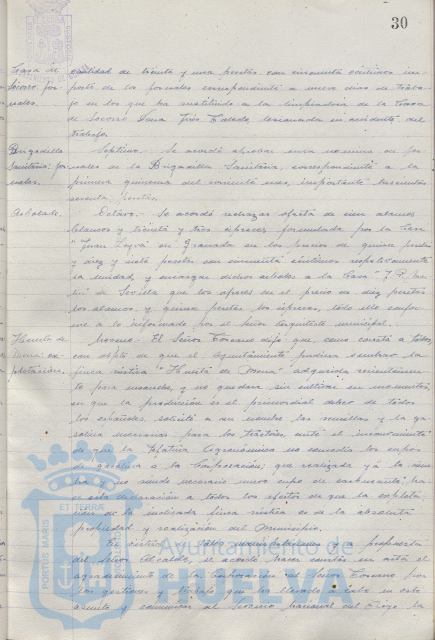 30
Casa de
Socorro jor
nales.
cantidad de treinta y una pesetas con cincuenta céntimos im-
porte de los jornales correspondientes a nueve días de traba-
jo en los que ha sustituido a la limpiadora de la Casa
de Socorro Doña Inés Toledo, lesionada en accidente del
trabajo.
Brigadilla
Sanitaria: jor
nales.
Séptimo.- Se acordó aprobar una nómina de jor
nales de la Brigadilla Sanitaria, correspondiente a la
primera quincena del corriente mes, importante trescientas
sesenta pesetas.
Arbolado.
Octavo.- Se acordó rechazar oferta de cien álamos
blancos y treinta y tres cipreses formulada por la Casa
"Juan Leyva" de Granada en los precios de quince pesetas
y diez y siete pesetas con cincuenta céntimos respectivamente
la unidad, y encargar dichos árboles a la Casa "J. P.
de Sevilla que los ofrece en el precio de diez pesetas
los álamos, y quince pesetas los cipreses, todo ello confor
me a lo informado por el Señor Arquitecto municipal.
Huerta de
Mena: ex
plotación.
Noveno.- El Señor Toscano dijo que, como consta a todos,
con objeto de que el Ayuntamiento pudiera sembrar la
finca rústica "Huerta de Mena" adquirida recientemen
te para escuelas, y no quedara sin cultivo en momentos
en que la producción es el primordial deber de todos
los españoles, solicitó a su nombre las semillas y la ga
solina necesarias para los tractores, ante el inconveniente
de que la Jefatura Agronómica no concedía los cupos
de gasolina a la Corporación; que realizada ya la siem
bra y no siendo necesario nuevo cupo de carburante, ha
ce esta declaración a todos los efectos de que la explota
ción de la indicada finca rústica es de la absoluta
propiedad y realización del Municipio.
El
del Señor Alcalde, se acordó hacer constar en acta el
agradecimiento de la Corporación al Señor Toscano por
las gestiones y trabajo que ha llevado a cabo en este
asunto y comunicar al
ET TERRÆ
PORTUS MARIS
Ayuntamiento de
HUELVA